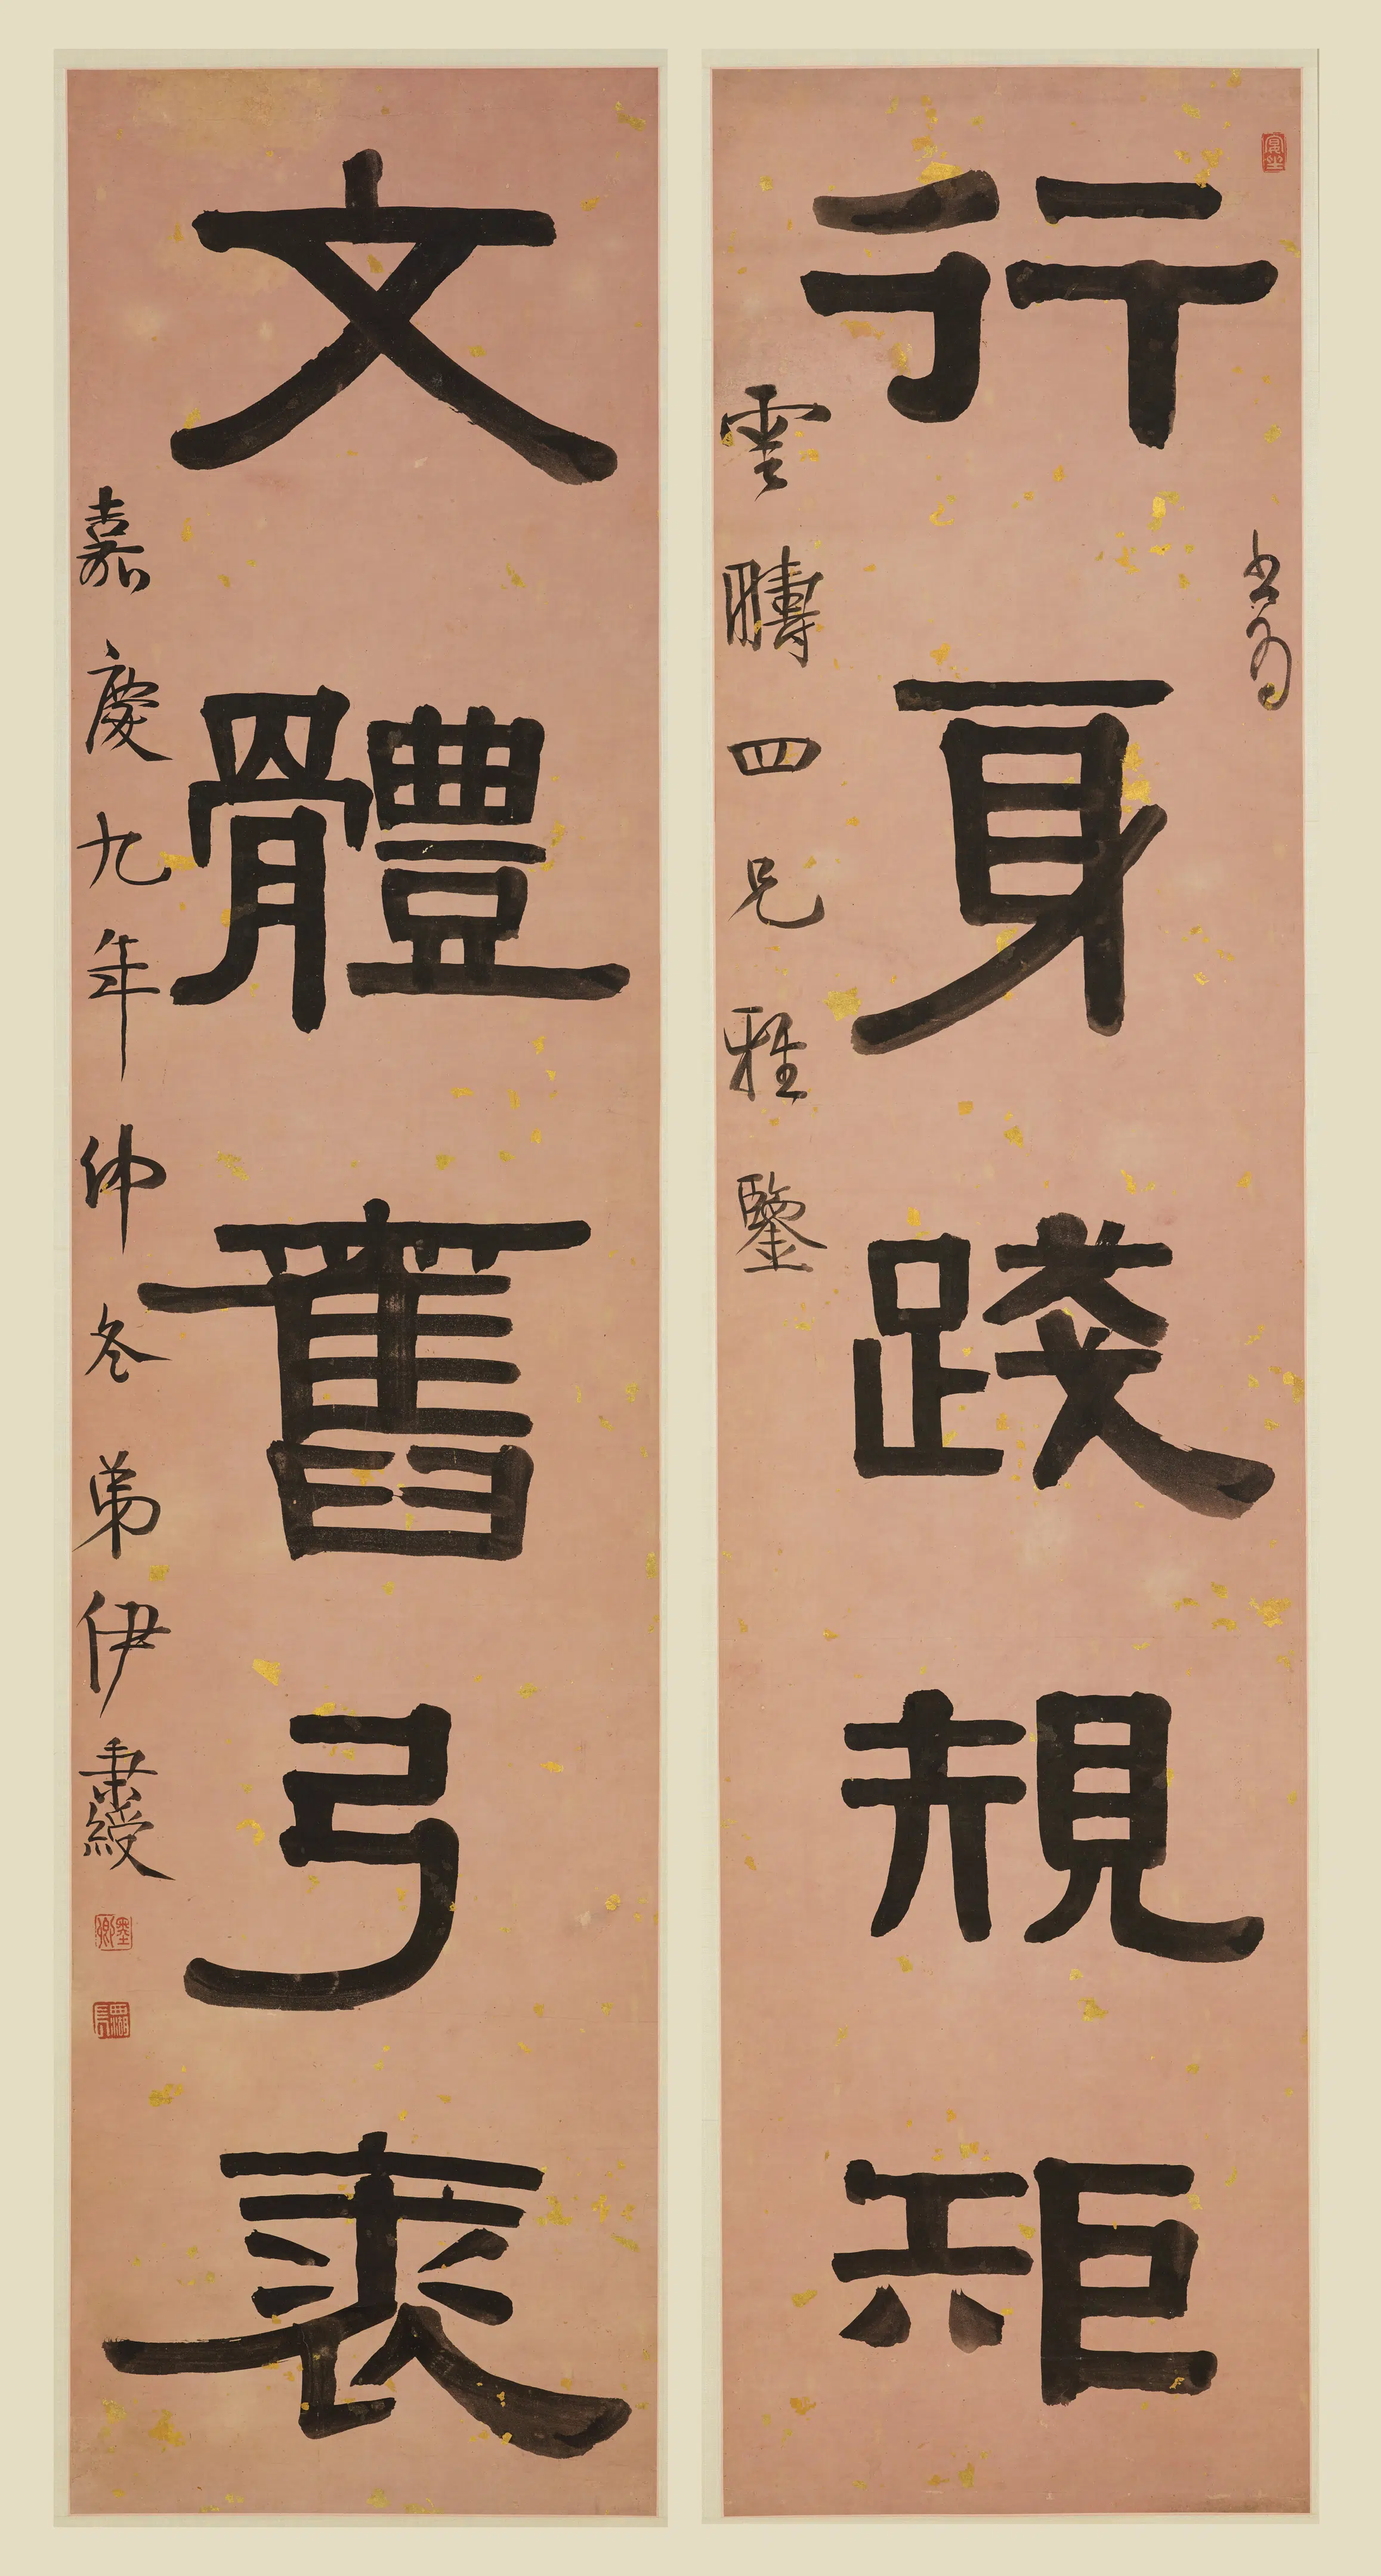 行身踐規矩
書為
雲疇四兄雅鑒
文體舊弓裘
嘉慶九年仲冬弟伊秉綬
墨卿